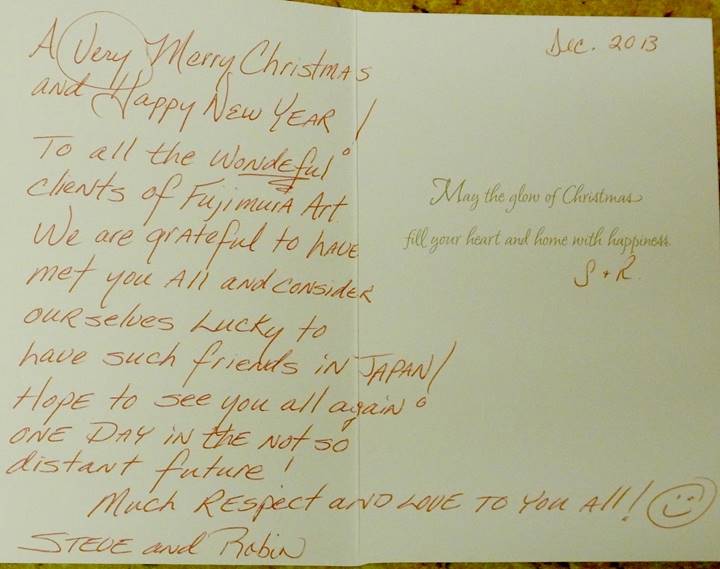 A Very Merry Christmas
and Happy New Year!
To all the Wondeful
clients of Fujimura Art.
We are grateful to have
met you all and consider
ourselves lucky to
have such friends in Japan!
Hope to see you all again
one day in the not so
distant future!
Much Respect and Love to you all!
Steve and Robin
Dec. 2013
May the glow of Christmas
fill your heart and home with happiness.
S + R.